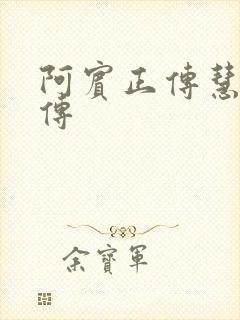 阿賓正傳慧
傳
余寶軍